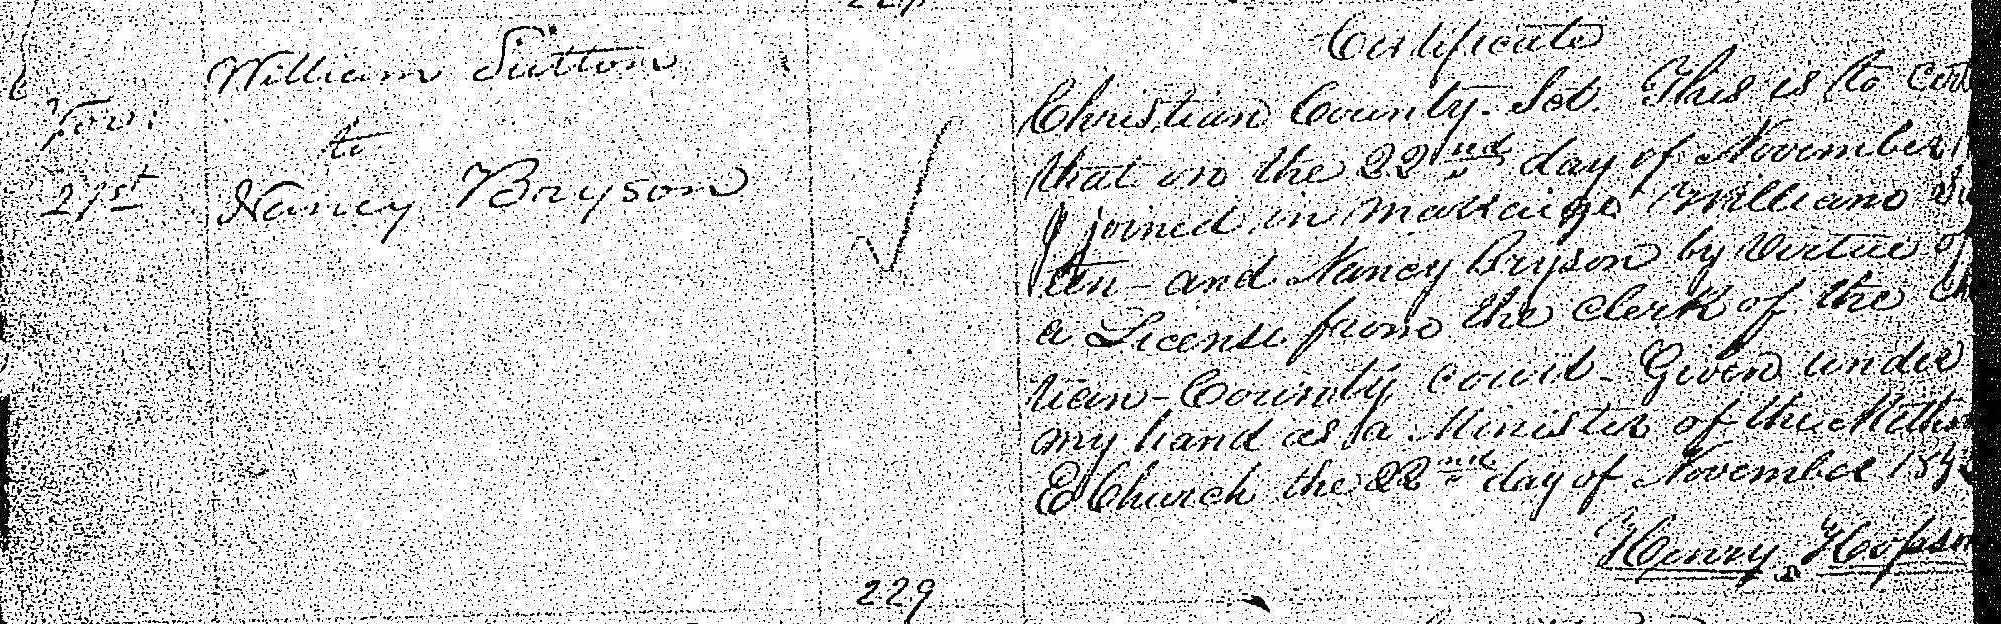 William Sutton
to
Nancy Bryson
Nov.
21st
229
Certificate
Christian County. Sct. This is to cert
that on the 22nd day of November
I joined in marriage William Su
ten - and Nancy Bryson by virtue of
a License from the Clerk of the Ch
tian - County court - Given under
my hand as a Minister of the Meth
E Church the 22nd day of November 184
Henry Hopson